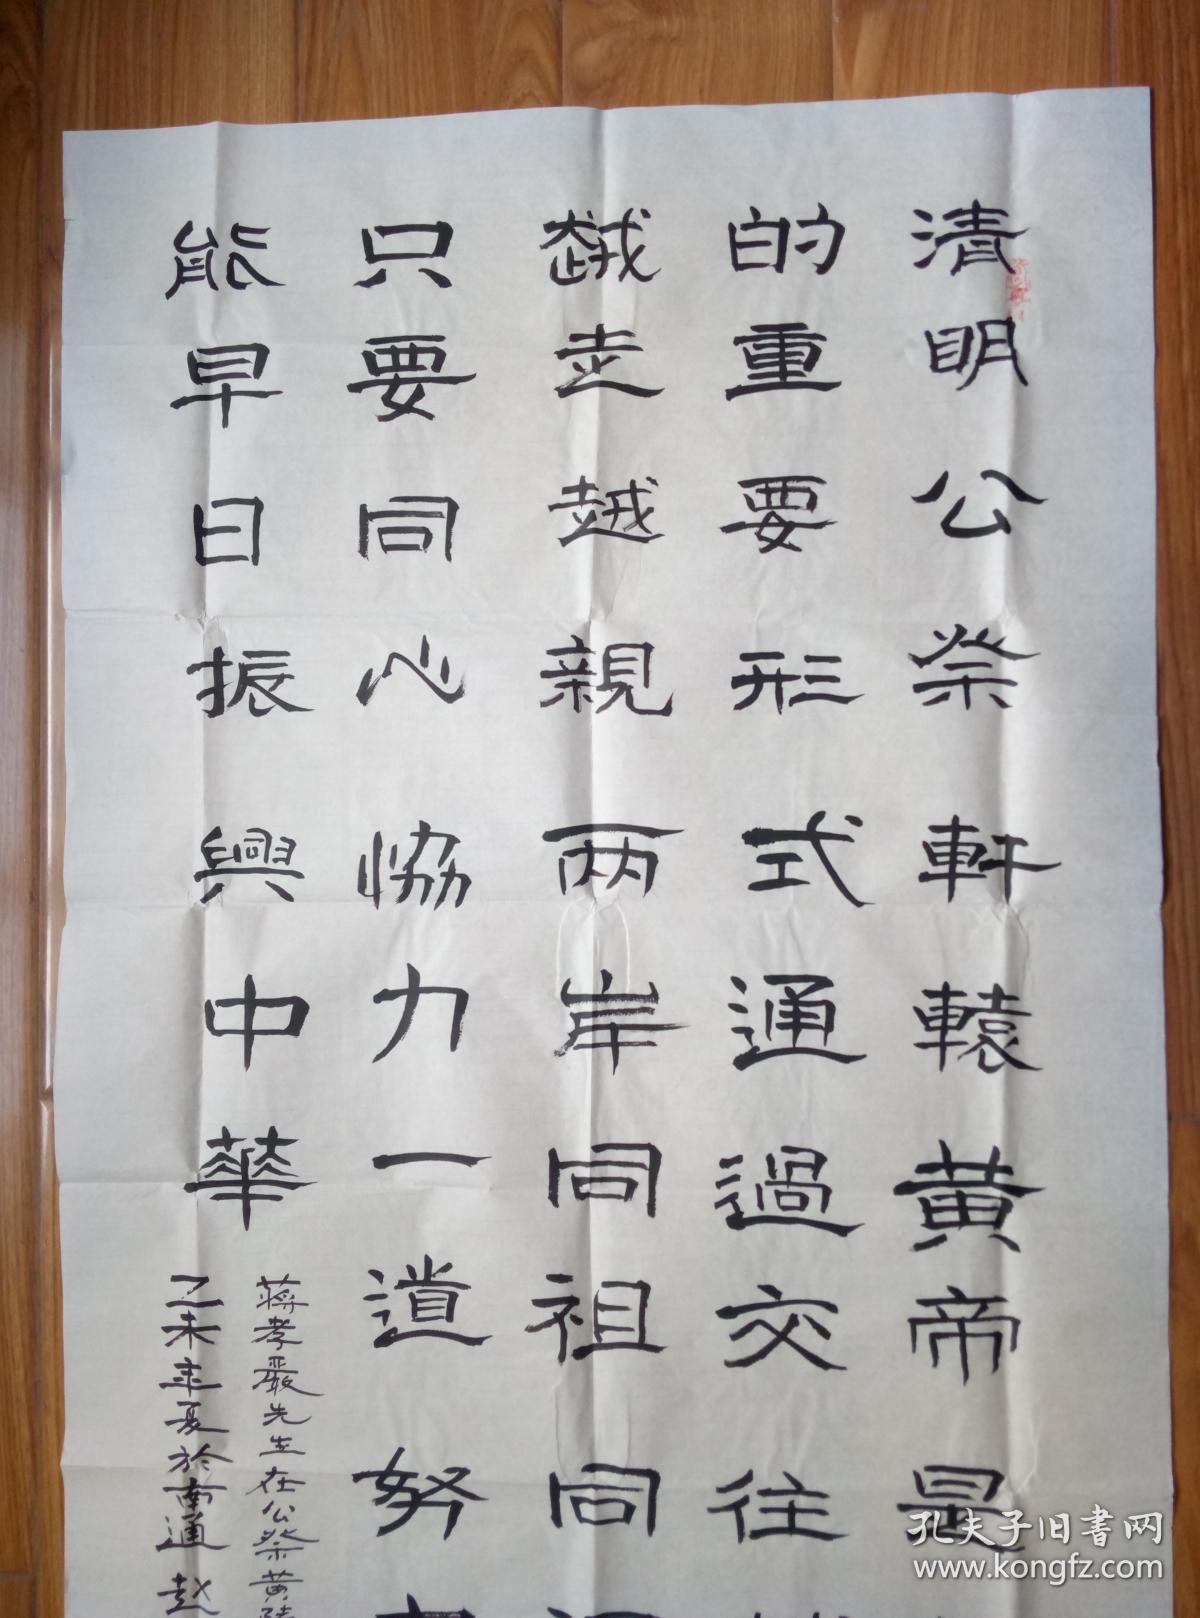 清明公祭軒轅黃帝是
的重要形式通過交往
越走越親兩岸同祖同
只要同心協力一道努
能早日振興中華
蔣孝嚴先生在公祭黃陵
乙未年夏於南通趙
孔夫子旧書网
www.kongfz.com